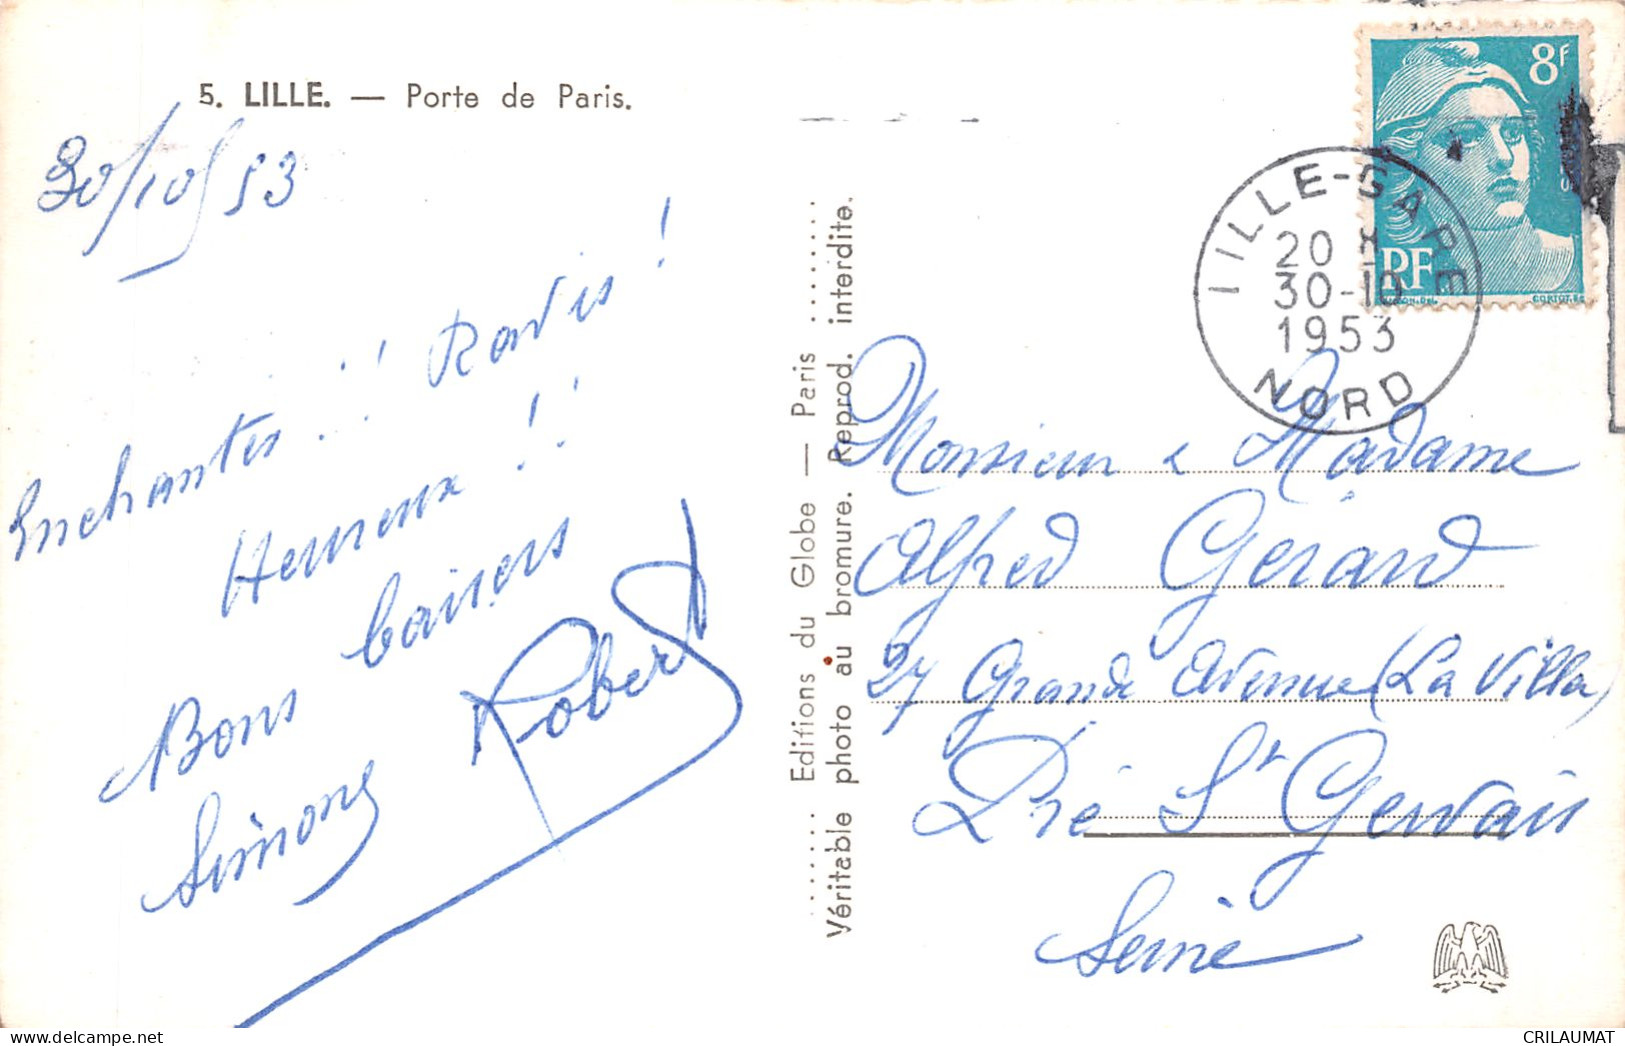 5. LILLE. — Porte de Paris.
30/10/53
Enchantés !! Ravis !
Heureux !!
Bons baisers
Simone Robert
Editions du Globe — Paris
Véritable photo au bromure. Reprod. interdite.
8F
RF
CORTOT.SC
LILLE-GARE
20 H
30-10
1953
NORD
Monsieur & Madame
Alfred Gérard
27 Grande Avenue (La Villa)
Pré St Gervais
Seine
CRILAUMAT